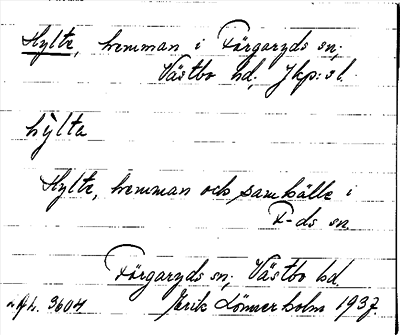 Hylte, hemman i Färgaryds sn;
Västbo hd; Jkp:s l.
hỳlta
Hylte, hemman och samhälle i
F-ds sn
Färgaryds sn; Västbo hd.
Erik Lönnerholm 1937.
3604